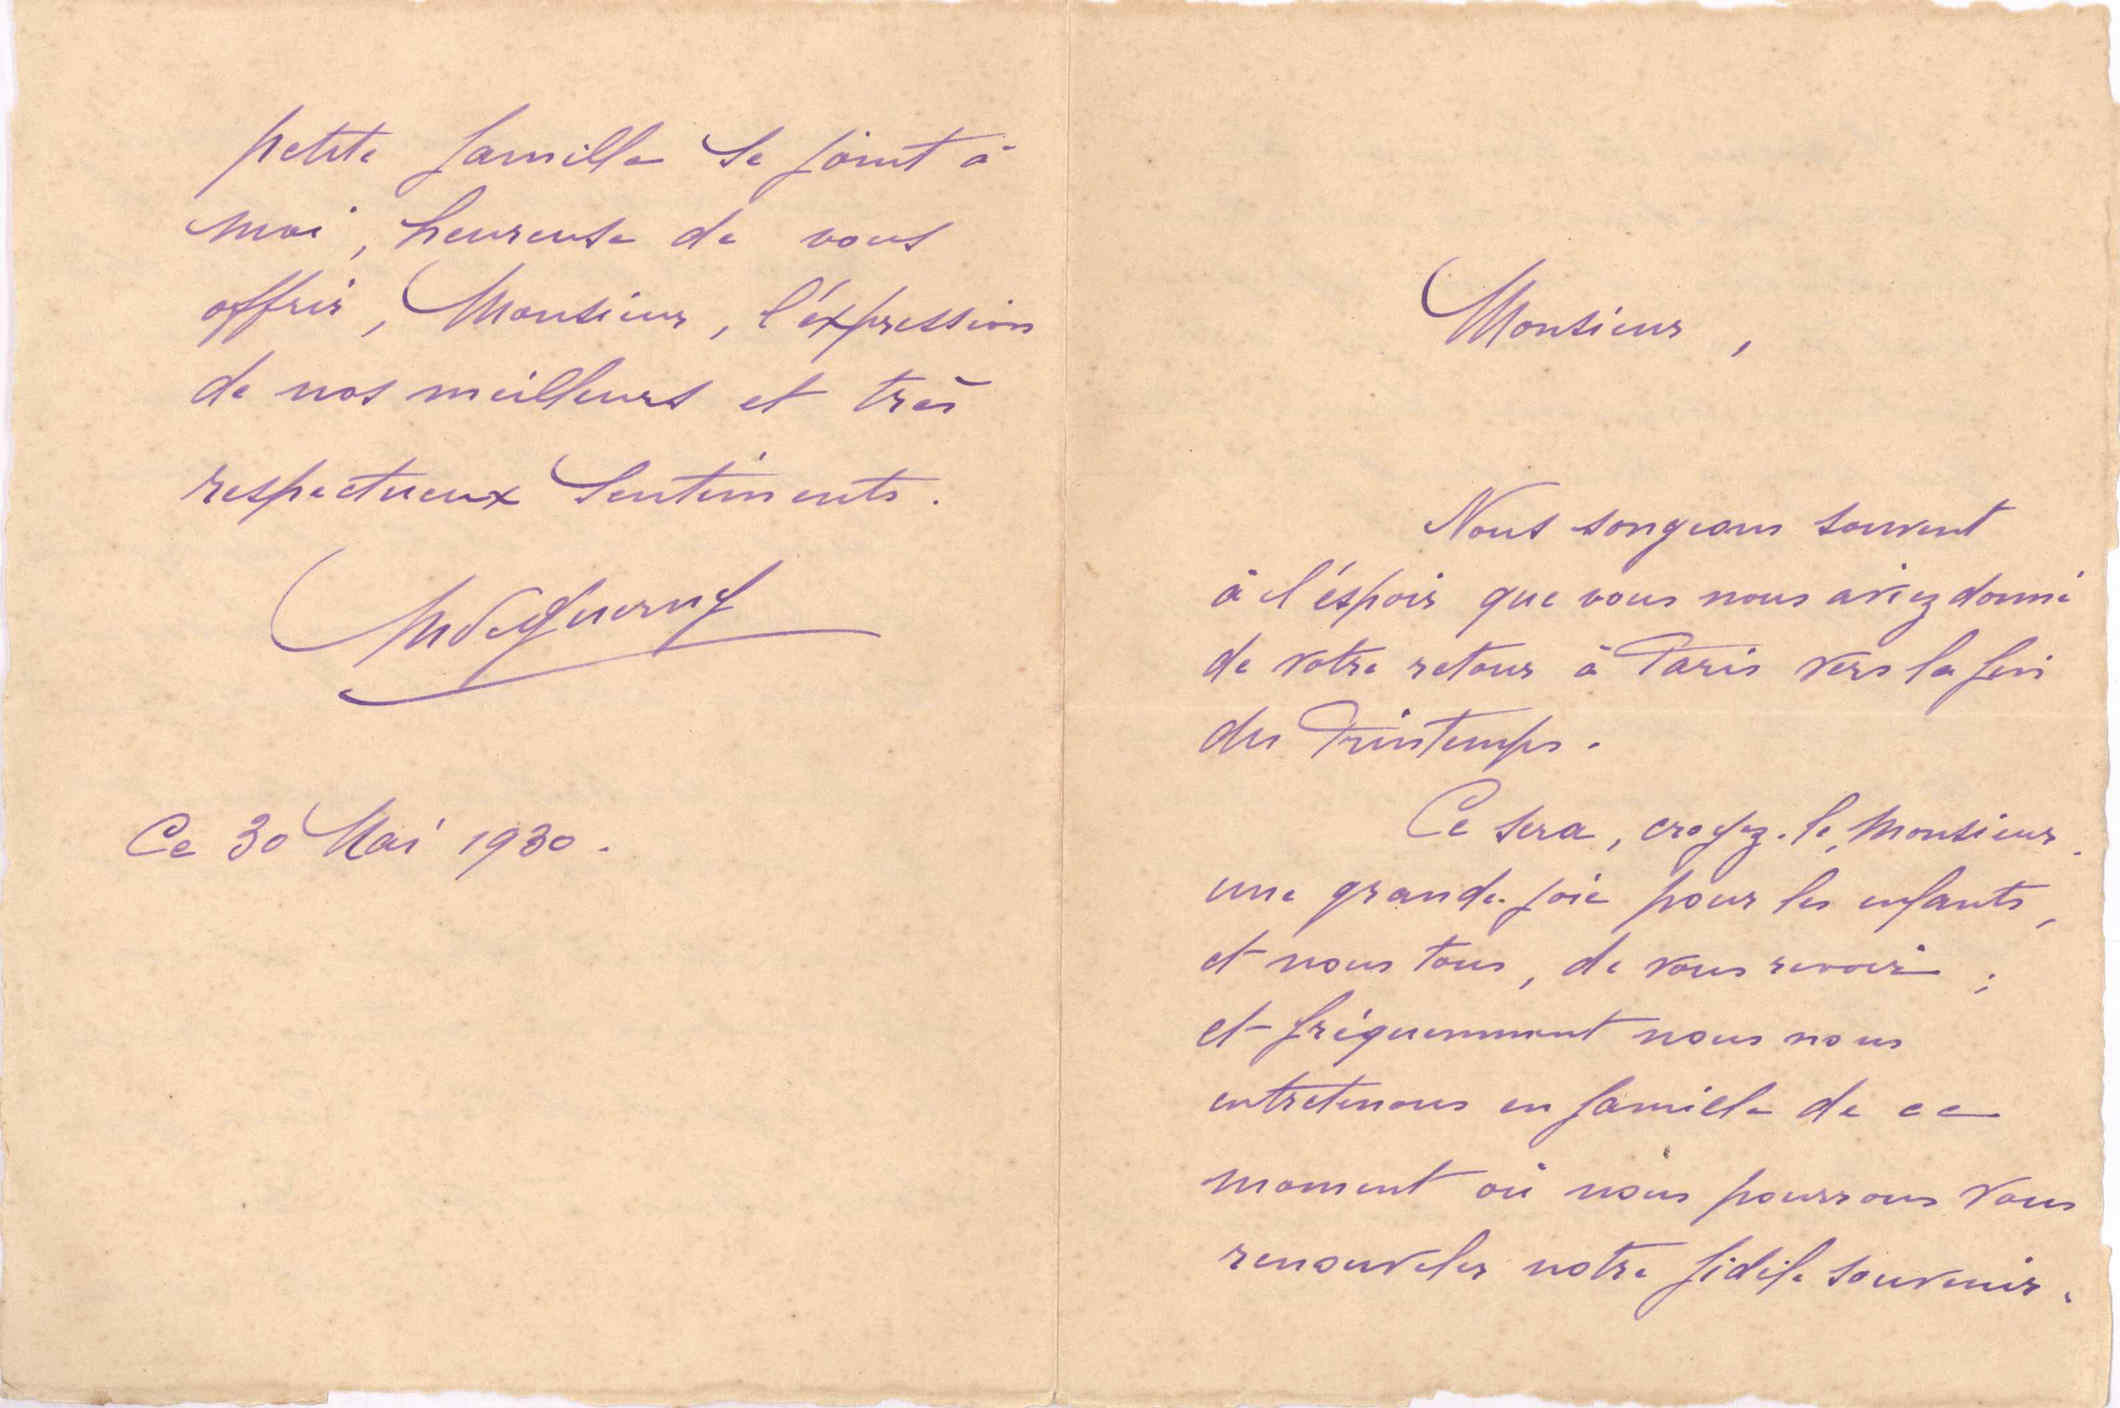 Monsieur,
Nous songeons souvent
à l'éspoir que vous nous aviez donné
de votre retour à Paris vers la fin
du Printemps.
Ce sera, croyez-le, Monsieur,
une grande joie pour les enfants,
et nous tous, de vous revoir ;
et fréquemment nous nous
entretenons en famille de ce
moment où nous pourrons vous
renouveler notre fidèle souvenir.
petite famille se joint à
moi, heureuse de vous
offrir, Monsieur, l'éxpression
de nos meilleurs et très
respectueux sentiments.
Ce 30 Mai 1930.